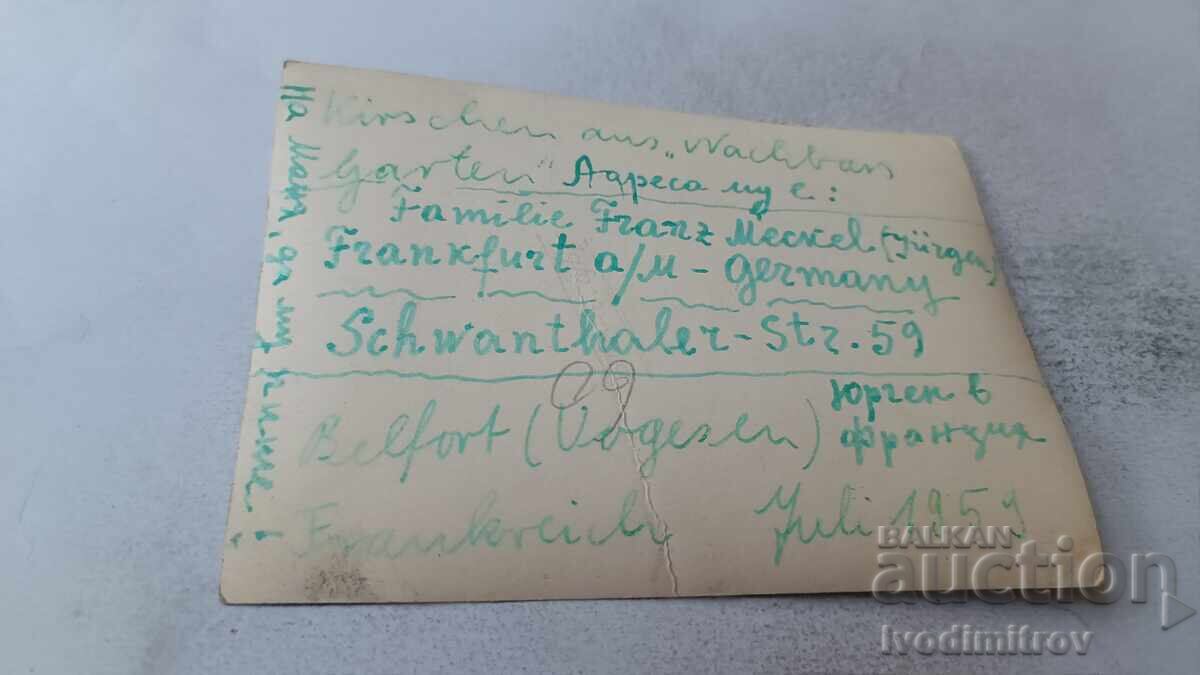 Kirschen aus „Nachbars
Garten“ Адреса му е:
Familie Franz Meckel (Jürgen)
Frankfurt a/M - Germany
Schwanthaler - Str. 59
Belfort (Vogesen)
Юрген в
Франция
Frankreich Juli 1959
На Мени, да му пише!
BALKAN
auction
Ivodimitrov